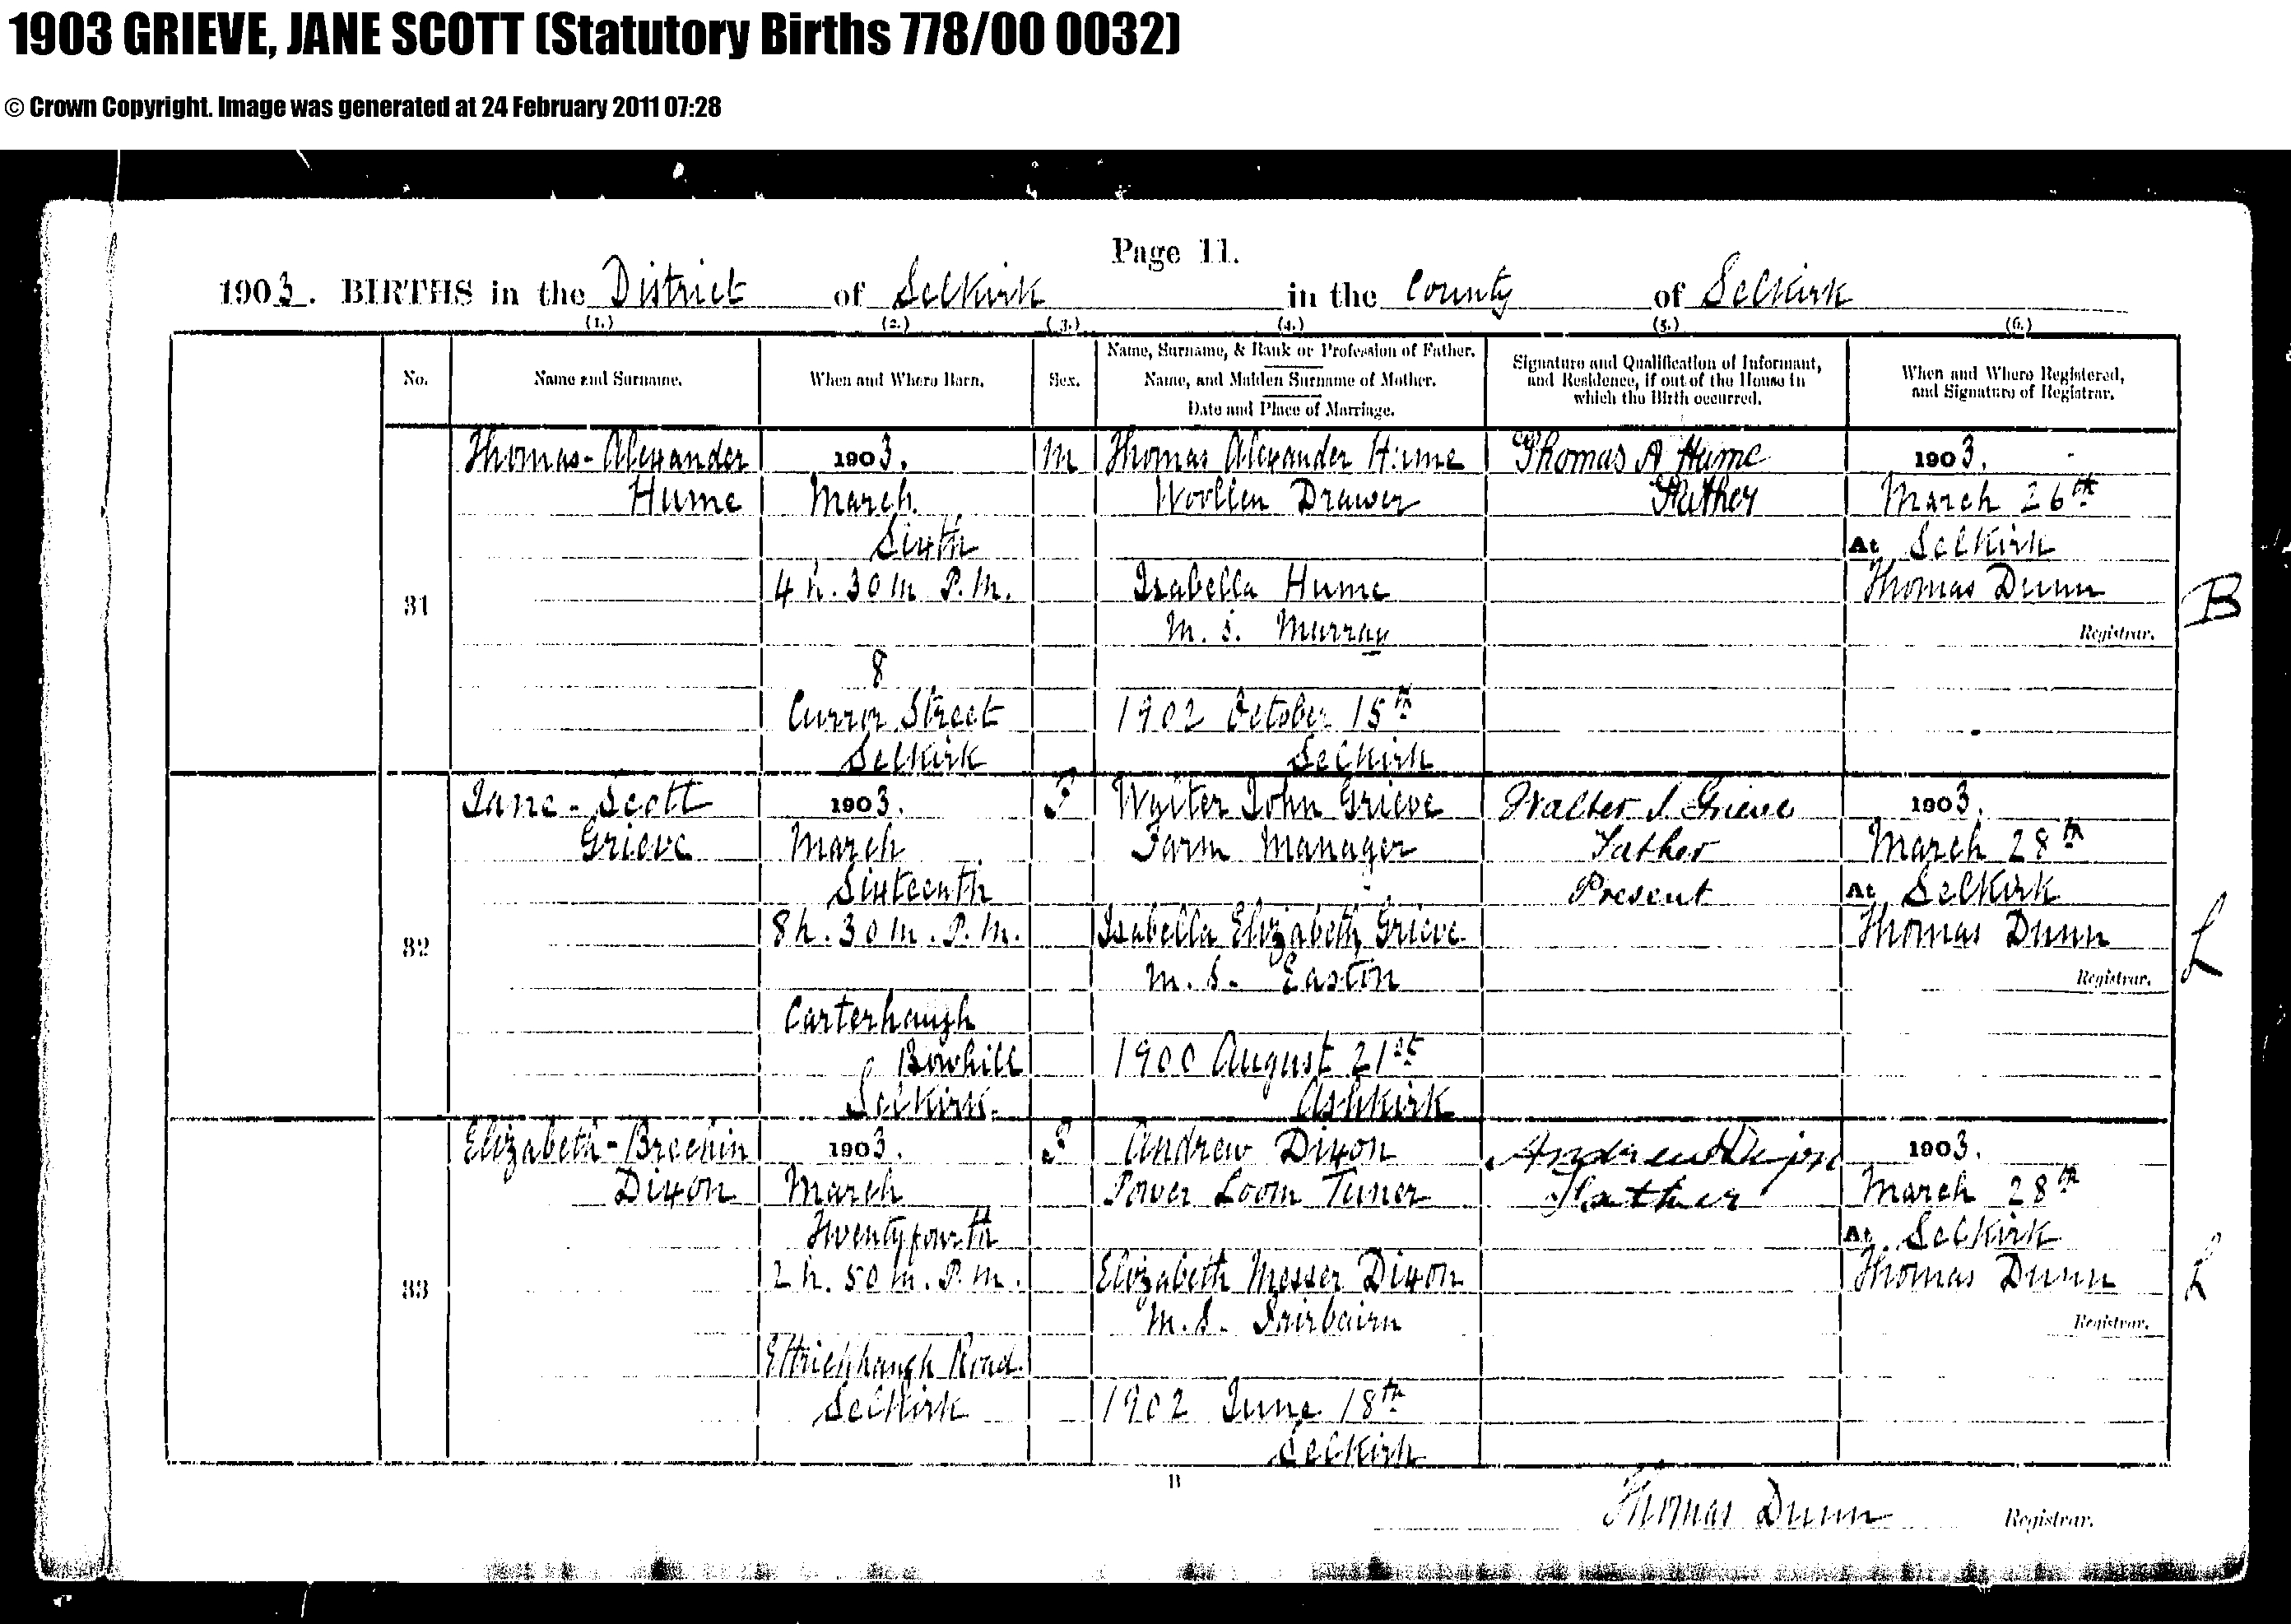 1903 GRIEVE, JANE SCOTT (Statutory Births 778/00 0032)
© Crown Copyright. Image was generated at 24 February 2011 07:28
Page 11.
1903. BIRTHS in the District of Selkirk in the County of Selkirk
(1.) (2.) (3.) (4.) (5.) (6.)
No.
Name and Surname.
When and Where Born.
Sex.
Name, Surname, & Rank or Profession of Father.
Name, and Maiden Surname of Mother.
Date and Place of Marriage.
Signature and Qualification of Informant,
and Residence, if out of the House in
which the Birth occurred.
When and Where Registered,
and Signature of Registrar.
31
Thomas-Alexander
Hume
1903.
March
Sixth
4 h. 30 m. P.M.
8
Curror Street
Selkirk
M
Thomas Alexander Hume
Woollen Drawer
Isabella Hume
M. S. Murray
1902 October 15th
Selkirk
Thomas A Hume
Father
1903.
March 26th
At Selkirk
Thomas Dunn
Registrar.
B
32
Jane-Scott
Grieve
1903.
March
Sixteenth
8 h. 30 m. P.M.
Carterhaugh
Bowhill
Selkirk.
F
Walter John Grieve
Farm Manager
Isabella Elizabeth Grieve
M. S. Easton
1900 August 21st
Ashkirk
Walter J. Grieve
Father
Present
1903.
March 28th
At Selkirk
Thomas Dunn
Registrar.
L
33
Elizabeth-Brechin
Dixon
1903.
March
Twentyfourth
2 h. 50 m. P.M.
Ettrickhaugh Road.
Selkirk
F
Andrew Dixon
Power Loom Tuner
Elizabeth Messer Dixon
M. S. Fairbairn
1902 June 18th
Selkirk
Andrew Dixon
Father
1903.
March 28th
At Selkirk
Thomas Dunn
Registrar.
L
B
Thomas Dunn Registrar.